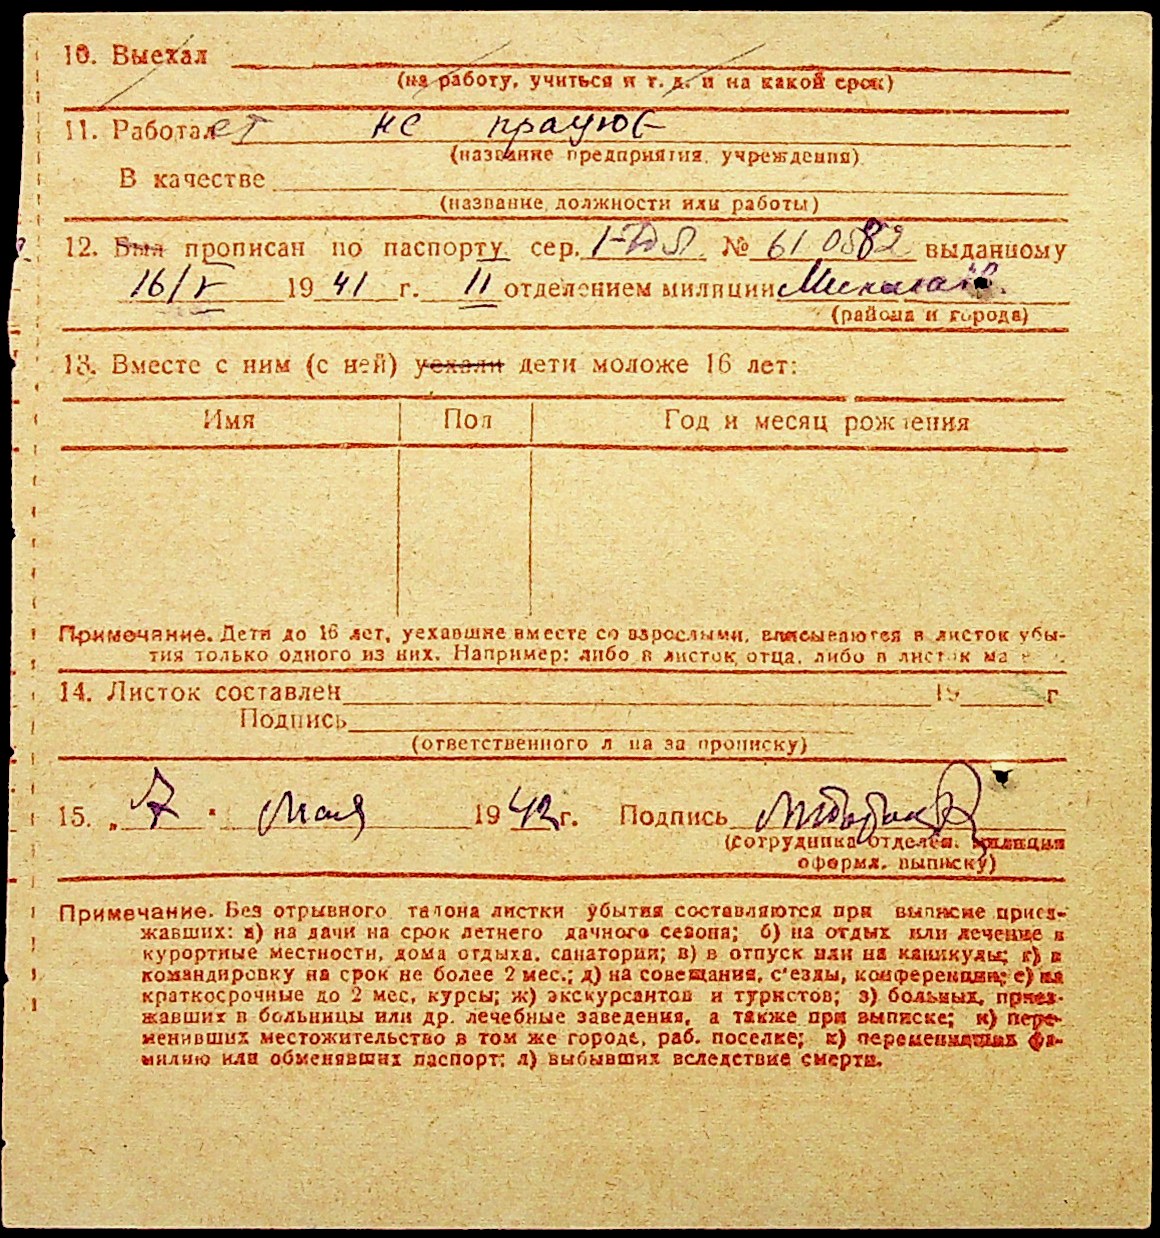 10. Выехал
(на работу, учиться и т. д. и на какой срок)
11. Работает не працює
(название предприятия, учреждения)
В качестве
(название должности или работы)
12. Был прописан по паспорту сер. № 610582 выданному
16/V 1941 г. II отделением милиции
(района и города)
13. Вместе с ним (с ней) уехали дети моложе 16 лет:
Имя Пол Год и месяц рождения
Примечание. Дети до 16 лет, уехавшие вместе со взрослыми, вписываются в листок убы-
тия только одного из них. Например: либо в листок отца, либо в листок ма
14. Листок составлен 19 г
Подпись
(ответственного лица за прописку)
15. „7" мая 1942 г. Подпись
(сотрудника отделен. милиции
оформл. выписку)
Примечание. Без отрывного талона листки убытия составляются при выписке приез-
жавших: а) на дачи на срок летнего дачного сезона; б) на отдых или лечение в
курортные местности, дома отдыха, санатории; в) в отпуск или на каникулы; г) в
командировку на срок не более 2 мес.; д) на совещания, с'езды, конференции; е) на
краткосрочные до 2 мес, курсы; ж) экскурсантов и туристов; з) больных, приез-
жавших в больницы или др. лечебные заведения, а также при выписке; и) пере-
менивших местожительство в том же городе, раб. поселке; к) переменивших фа-
милию или обменявших паспорт; л) выбывших вследствие смерти.